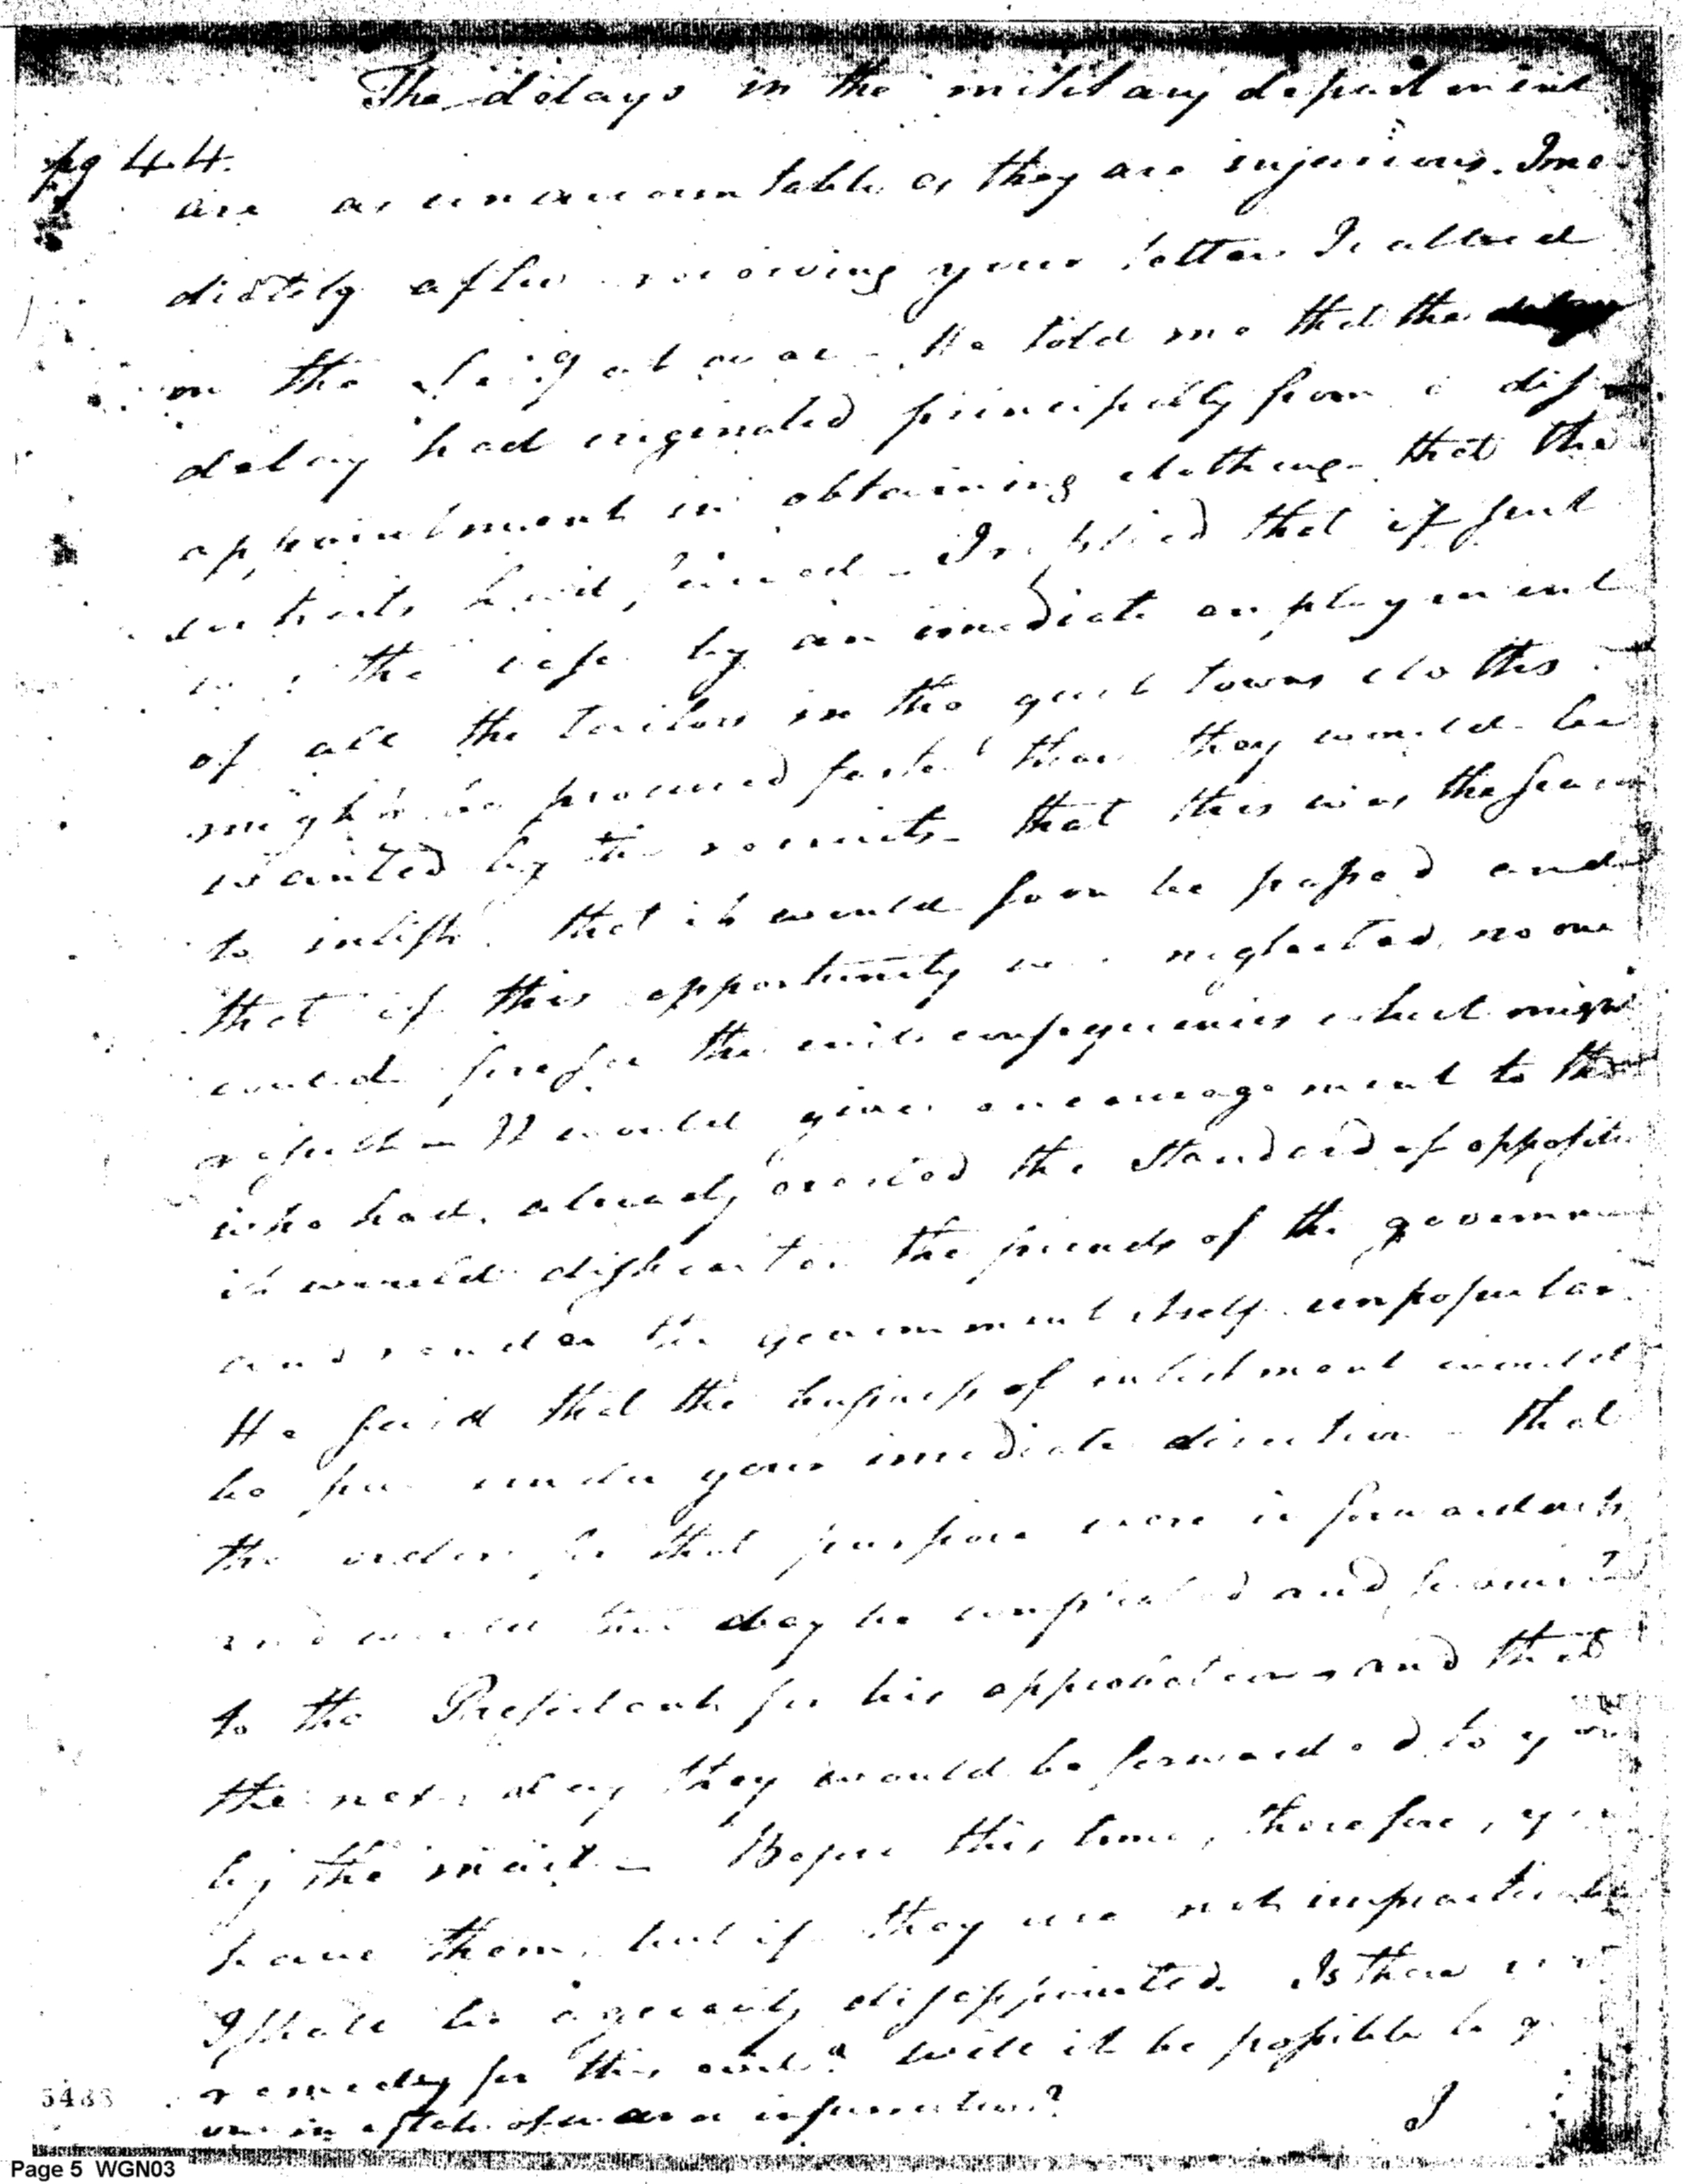 The delays in the military department
pg 44.
are as unaccountable as they are injurious. Ime
diately after receiving your letter I called
on the Sec'y at war - He told me that the
delay had originated principally from a dis
appointment in obtaining clothing - that the
contracts had failed - I replied that if such
was the case by an imediate employment
of all the tailors in the great towns cloths
might be procured faster than they would be
wanted by the recruits - that this was the season
to inlist that it would soon be passed and
that if this opportunity was neglected, no one
could foresee the evil consequencies which might
result - It would give encouragement to those
who had already erected the standard of oppositi
it would dishearten the friends of the governme
and render the government itself unpopular
He said that the business of inlistment would
be put under your imediate direction - that
the orders for that purpose were in forwardness
and would that day be completed and submited
to the President for his approbation - and that
the next day they would be forwarded to you
by the mail - Before this time, therefore, you
have them, but if they are not impracticable
I shall be agreeably disappointed. Is there not
remedy for this evil? will it be possible to
on in a state of war or insurrection?
I
5433
Page 5 WGN03